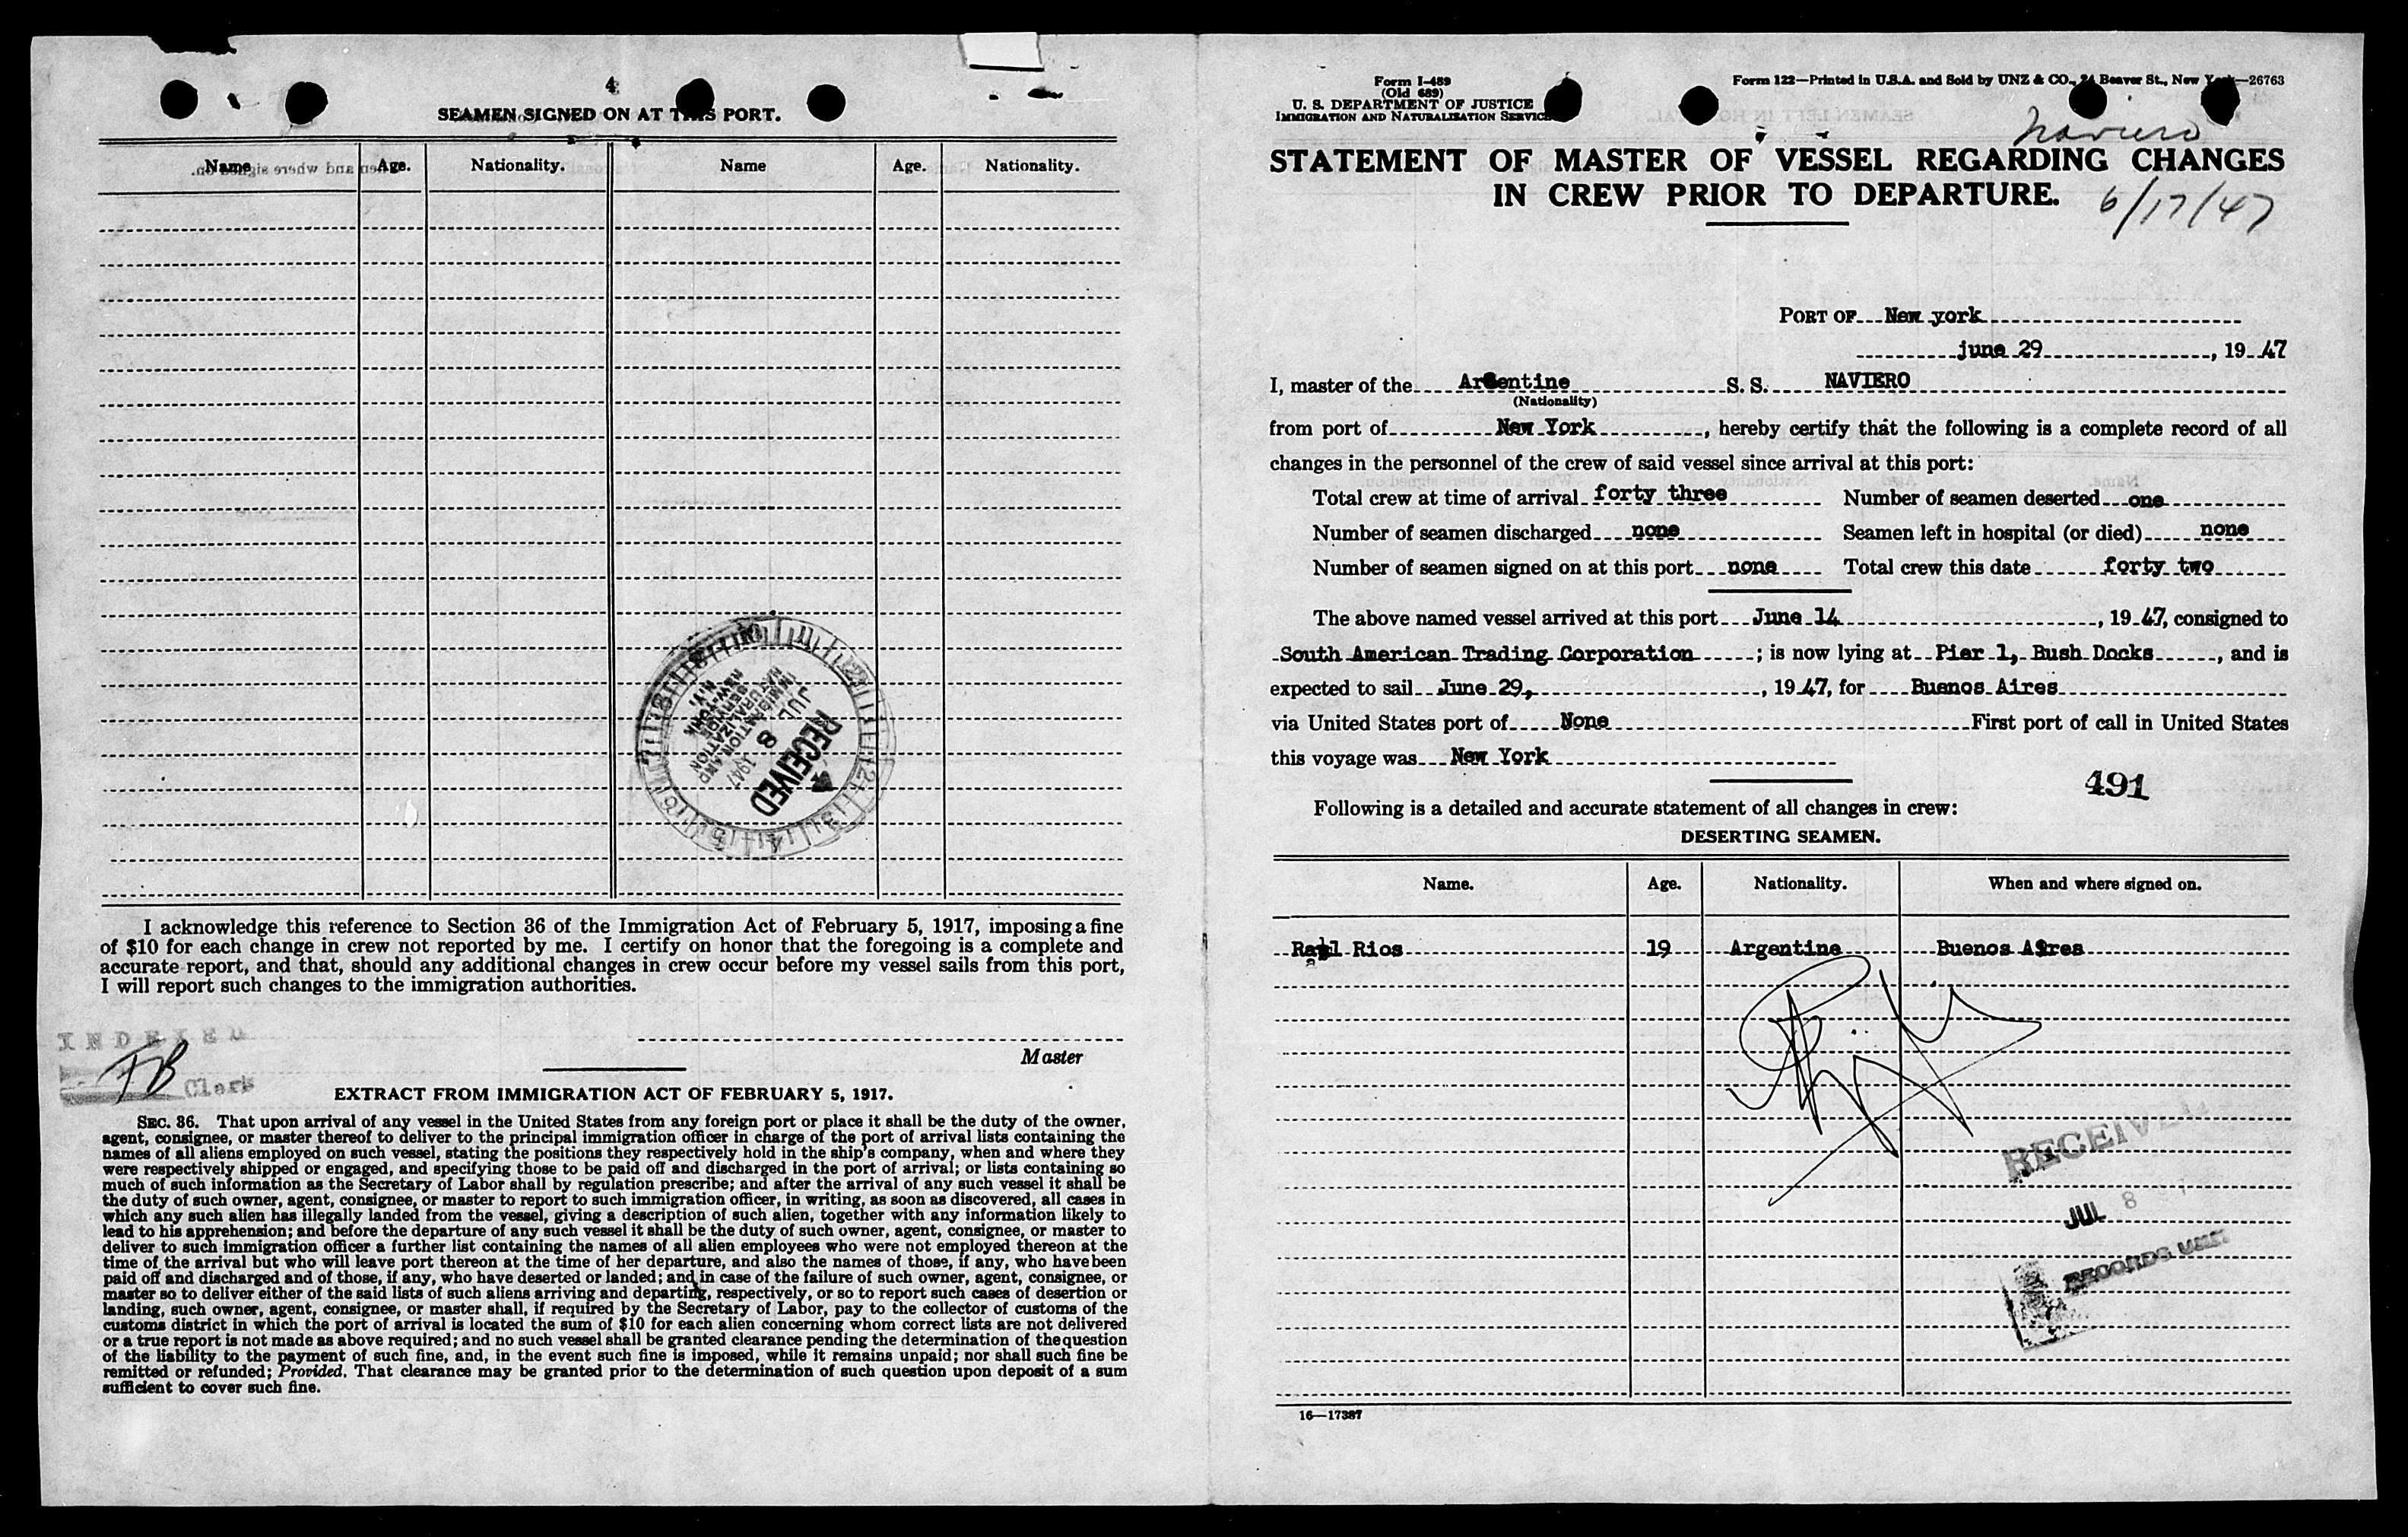 4
SEAMEN SIGNED ON AT THIS PORT.
Name Age. Nationality. Name Age. Nationality.
RECEIVED
JUL 8 1947
IMMIGRATION AND
NATURALIZATION
SERVICE
NEW YORK
N.Y.
I acknowledge this reference to Section 36 of the Immigration Act of February 5, 1917, imposing a fine
of $10 for each change in crew not reported by me. I certify on honor that the foregoing is a complete and
accurate report, and that, should any additional changes in crew occur before my vessel sails from this port,
I will report such changes to the immigration authorities.
INDEXED
FB Clerk
Master
EXTRACT FROM IMMIGRATION ACT OF FEBRUARY 5, 1917.
SEC. 36. That upon arrival of any vessel in the United States from any foreign port or place it shall be the duty of the owner,
agent, consignee, or master thereof to deliver to the principal immigration officer in charge of the port of arrival lists containing the
names of all aliens employed on such vessel, stating the positions they respectively hold in the ship's company, when and where they
were respectively shipped or engaged, and specifying those to be paid off and discharged in the port of arrival; or lists containing so
much of such information as the Secretary of Labor shall by regulation prescribe; and after the arrival of any such vessel it shall be
the duty of such owner, agent, consignee, or master to report to such immigration officer, in writing, as soon as discovered, all cases in
which any such alien has illegally landed from the vessel, giving a description of such alien, together with any information likely to
lead to his apprehension; and before the departure of any such vessel it shall be the duty of such owner, agent, consignee, or master to
deliver to such immigration officer a further list containing the names of all alien employees who were not employed thereon at the
time of the arrival but who will leave port thereon at the time of her departure, and also the names of those, if any, who have been
paid off and discharged and of those, if any, who have deserted or landed; and in case of the failure of such owner, agent, consignee, or
master so to deliver either of the said lists of such aliens arriving and departing, respectively, or so to report such cases of desertion or
landing, such owner, agent, consignee, or master shall, if required by the Secretary of Labor, pay to the collector of customs of the
customs district in which the port of arrival is located the sum of $10 for each alien concerning whom correct lists are not delivered
or a true report is not made as above required; and no such vessel shall be granted clearance pending the determination of the question
of the liability to the payment of such fine, and, in the event such fine is imposed, while it remains unpaid; nor shall such fine be
remitted or refunded; Provided, That clearance may be granted prior to the determination of such question upon deposit of a sum
sufficient to cover such fine.
Form I-489
(Old 689)
U. S. DEPARTMENT OF JUSTICE
IMMIGRATION AND NATURALIZATION SERVICE
Form 122—Printed in U.S.A. and Sold by UNZ & CO., 24 Beaver St., New York—26763
Naviero
STATEMENT OF MASTER OF VESSEL REGARDING CHANGES
IN CREW PRIOR TO DEPARTURE.
6/17/47
PORT OF New york
june 29, 19 47
I, master of the Argentine S. S. NAVIERO
(Nationality)
from port of New York, hereby certify that the following is a complete record of all
changes in the personnel of the crew of said vessel since arrival at this port:
Total crew at time of arrival forty three Number of seamen deserted one
Number of seamen discharged none Seamen left in hospital (or died) none
Number of seamen signed on at this port none Total crew this date forty two
The above named vessel arrived at this port June 14, 19 47, consigned to
South American Trading Corporation; is now lying at Pier 1, Bush Docks, and is
expected to sail June 29, , 19 47, for Buenos Aires
via United States port of None First port of call in United States
this voyage was New York
491
Following is a detailed and accurate statement of all changes in crew:
DESERTING SEAMEN.
Name. Age. Nationality. When and where signed on.
Raul Rios 19 Argentine Buenos Aires
RECEIVED
JUL 8
RECORDS UNIT
16—17387